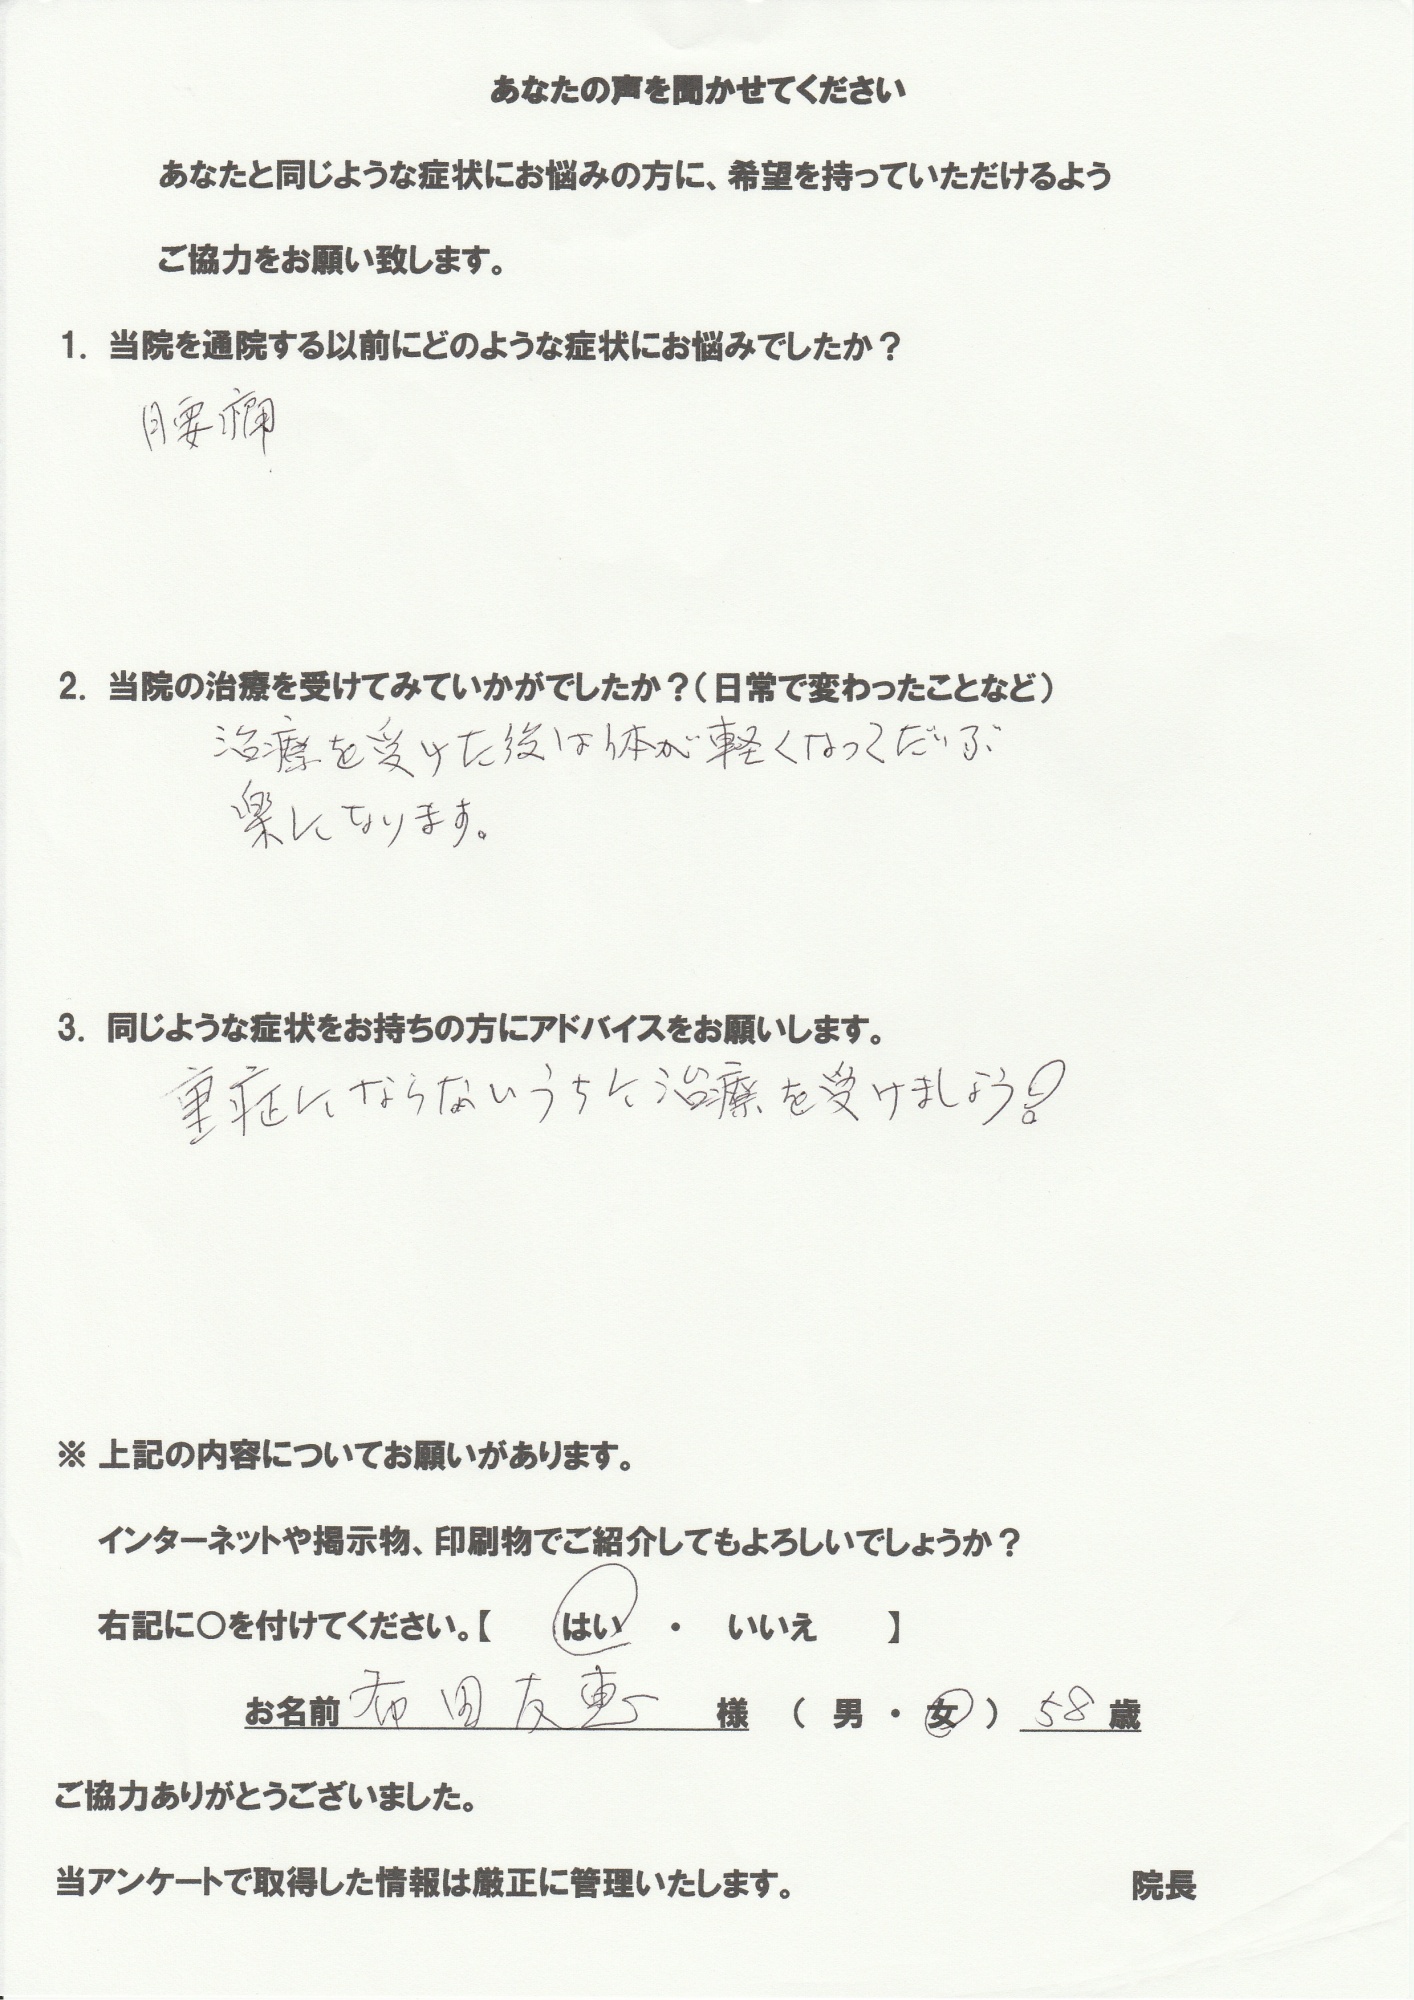 あなたの声を聞かせてください
あなたと同じような症状にお悩みの方に、希望を持っていただけるよう
ご協力をお願い致します。
1. 当院を通院する以前にどのような症状にお悩みでしたか？
腰痛
2. 当院の治療を受けてみていかがでしたか？（日常で変わったことなど）
治療を受けた後は体が軽くなってだいぶ
楽になります。
3. 同じような症状をお持ちの方にアドバイスをお願いします。
重症にならないうちに治療を受けましょう!
※ 上記の内容についてお願いがあります。
インターネットや掲示物、印刷物でご紹介してもよろしいでしょうか？
右記に○を付けてください。【 はい ・ いいえ 】
お名前 布田友恵 様 （ 男 ・ 女 ） 58 歳
ご協力ありがとうございました。
当アンケートで取得した情報は厳正に管理いたします。 院長